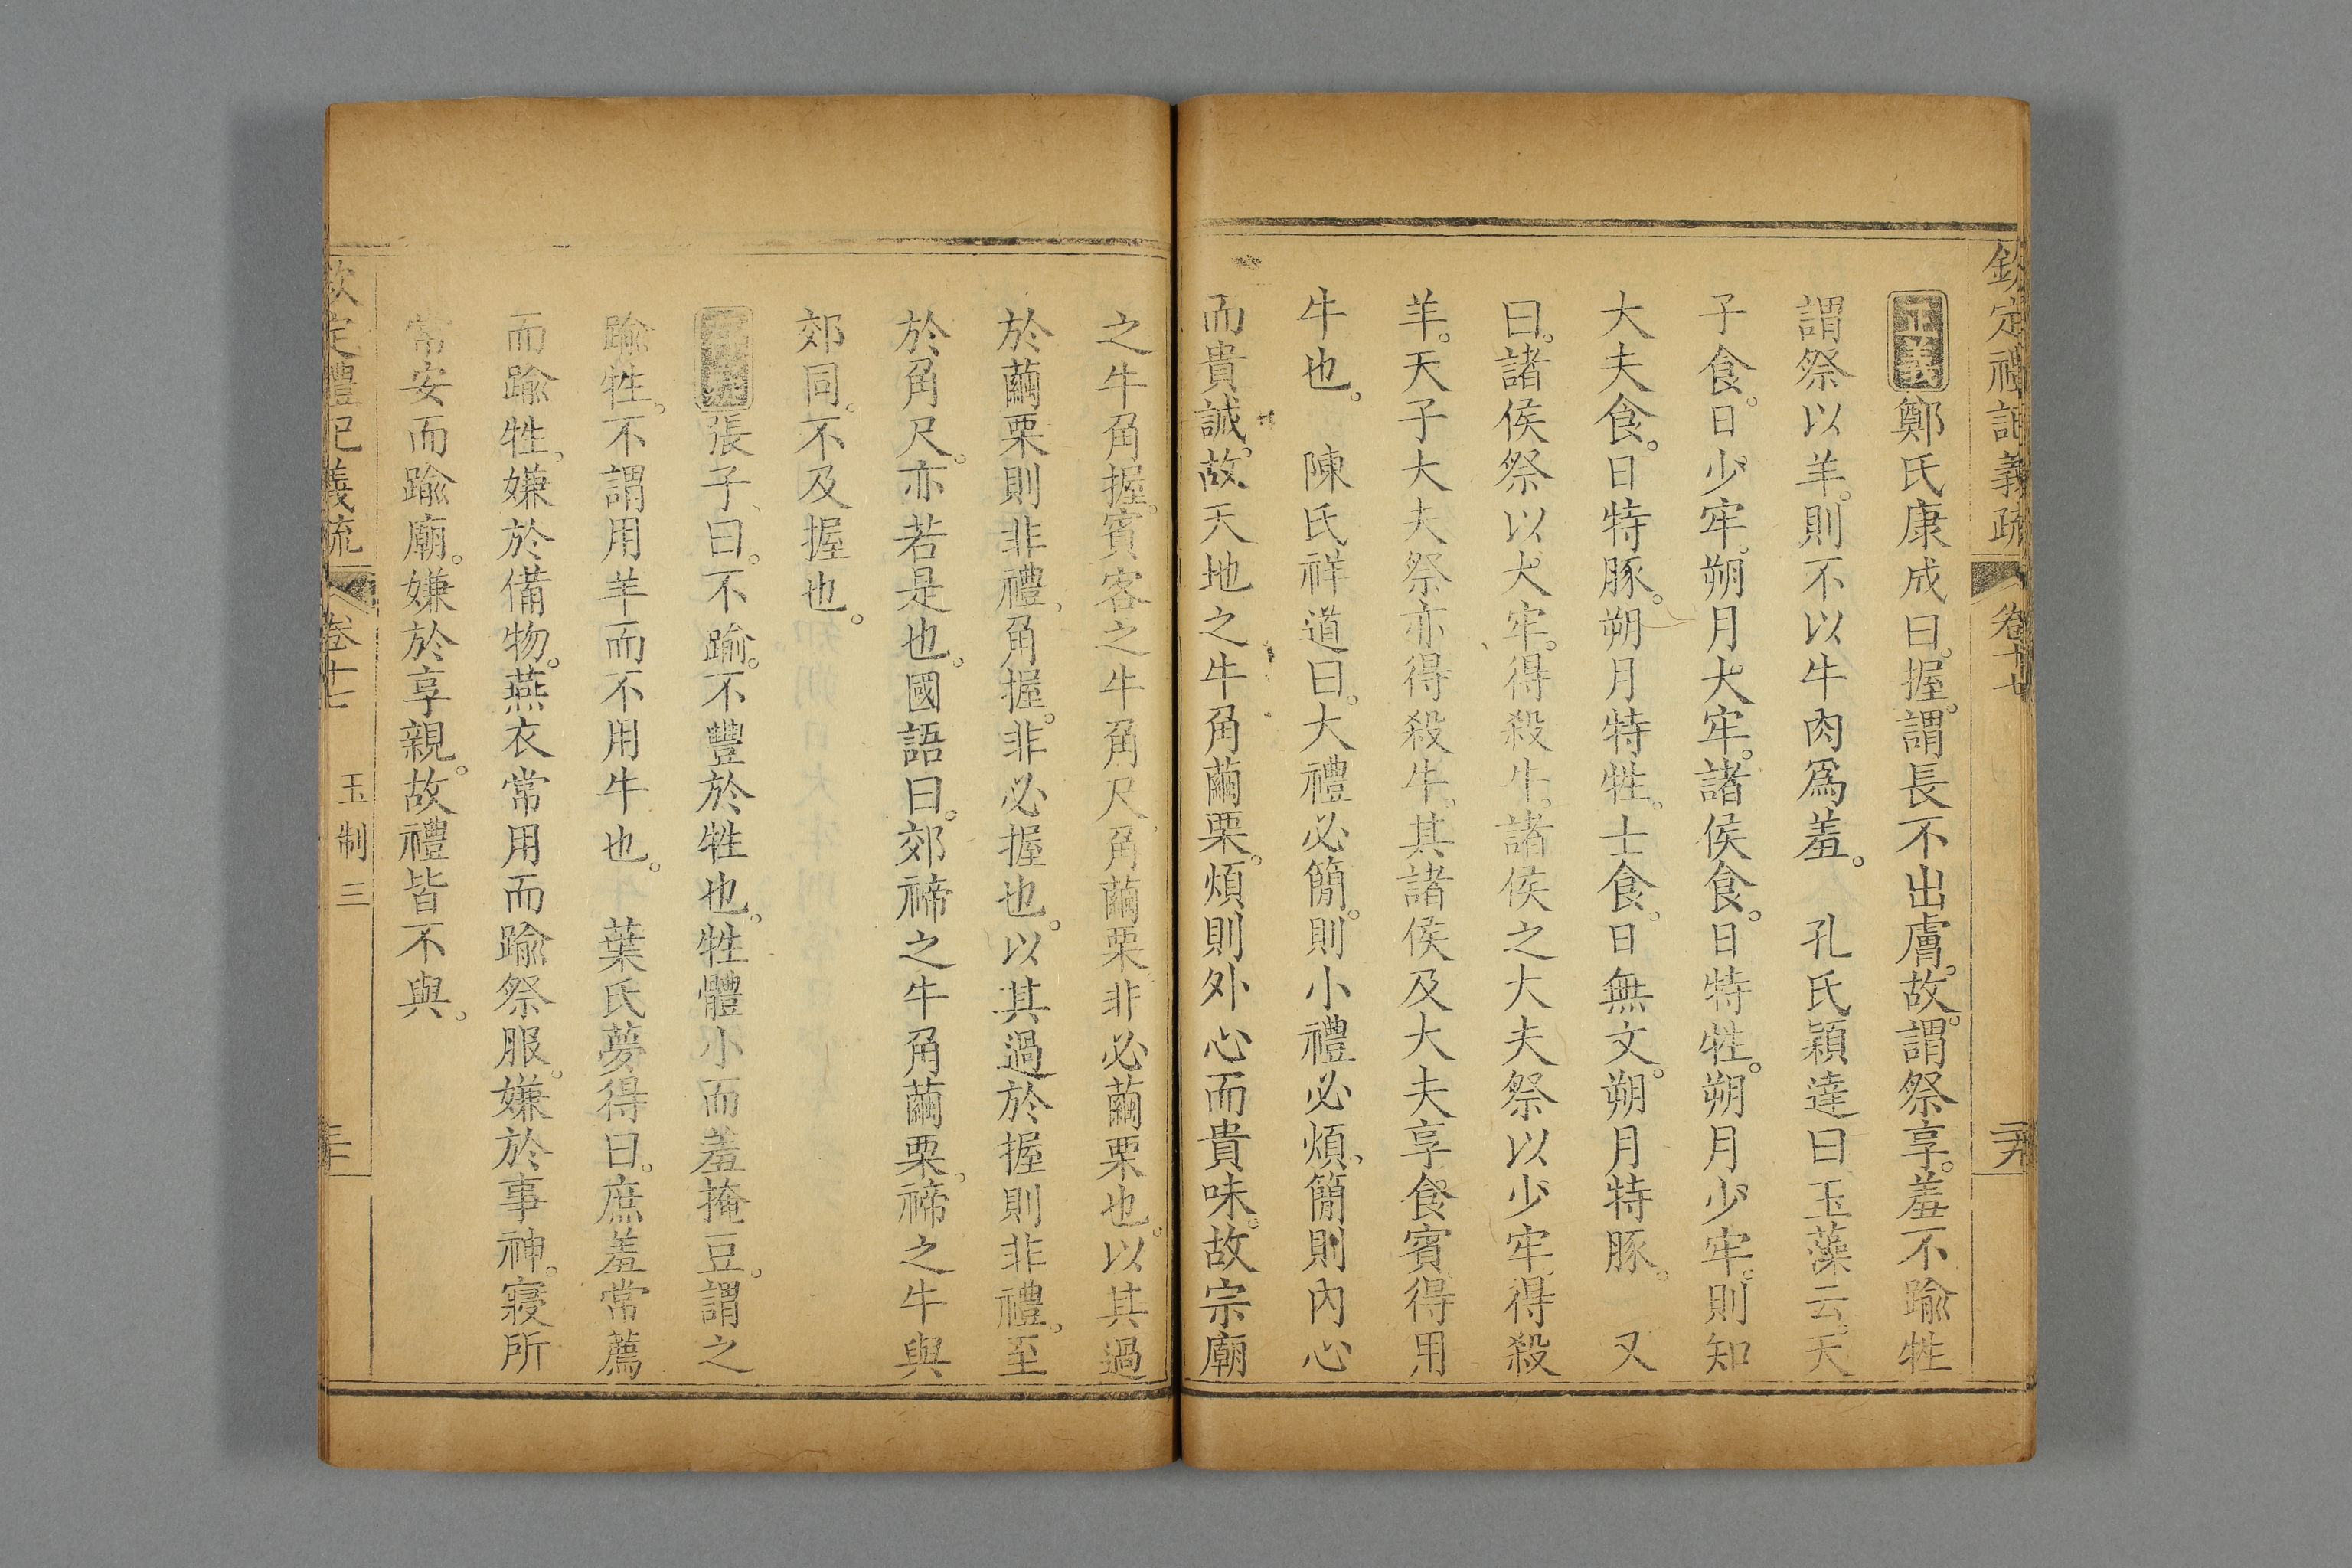 欽定禮記義疏 卷十七 二九
正義鄭氏康成曰。握。謂長不出膚。故。謂祭享。羞不踰牲
謂祭以羊。則不以牛肉爲羞。 孔氏穎達曰玉藻云。天
子食。日少牢。朔月大牢。諸侯食。日特牲。朔月少牢。則知
大夫食。日特豚。朔月特牲。士食。日無文。朔月特豚。 又
曰。諸侯祭以大牢。得殺牛。諸侯之大夫祭以少牢。得殺
羊。天子大夫祭亦得殺牛。其諸侯及大夫享食賓得用
牛也。 陳氏祥道曰。大禮必簡。則小禮必煩、簡則內心
而貴誠。故天地之牛角繭栗。煩則外心而貴味。故宗廟
之牛角握。賓客之牛角尺。角繭栗。非必繭栗也。以其過
於繭栗則非禮、角握。非必握也。以其過於握則非禮、至
於角尺。亦若是也。國語曰。郊禘之牛角繭栗、禘之牛與
郊同。不及握也。
張子曰。不踰。不豐於牲也。牲體小而羞掩豆。謂之
踰牲。不謂用羊而不用牛也。 葉氏夢得曰。庶羞常薦
而踰牲、嫌於備物。燕衣常用而踰祭服。嫌於事神。寢所
常安而踰廟。嫌於享親。故禮皆不與。
欽定禮記義疏 卷十七 王制三 三十